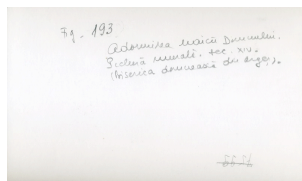 Fig. 193
Adormirea Maicii Domnului.
Pictură murală, sec. XV.
(Biserica domnească din Argeș).